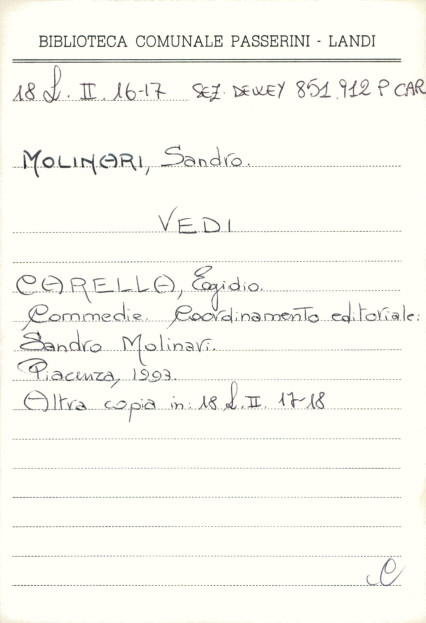 BIBLIOTECA COMUNALE PASSERINI - LANDI
18 L. II. 16-17 SEZ. DEWEY 851.912 P CAR
MOLINARI, Sandro.
VEDI
CARELLA, Egidio.
Commedie. Coordinamento editoriale:
Sandro Molinari.
Piacenza, 1993.
Altra copia in: 18 L. II. 17-18
C